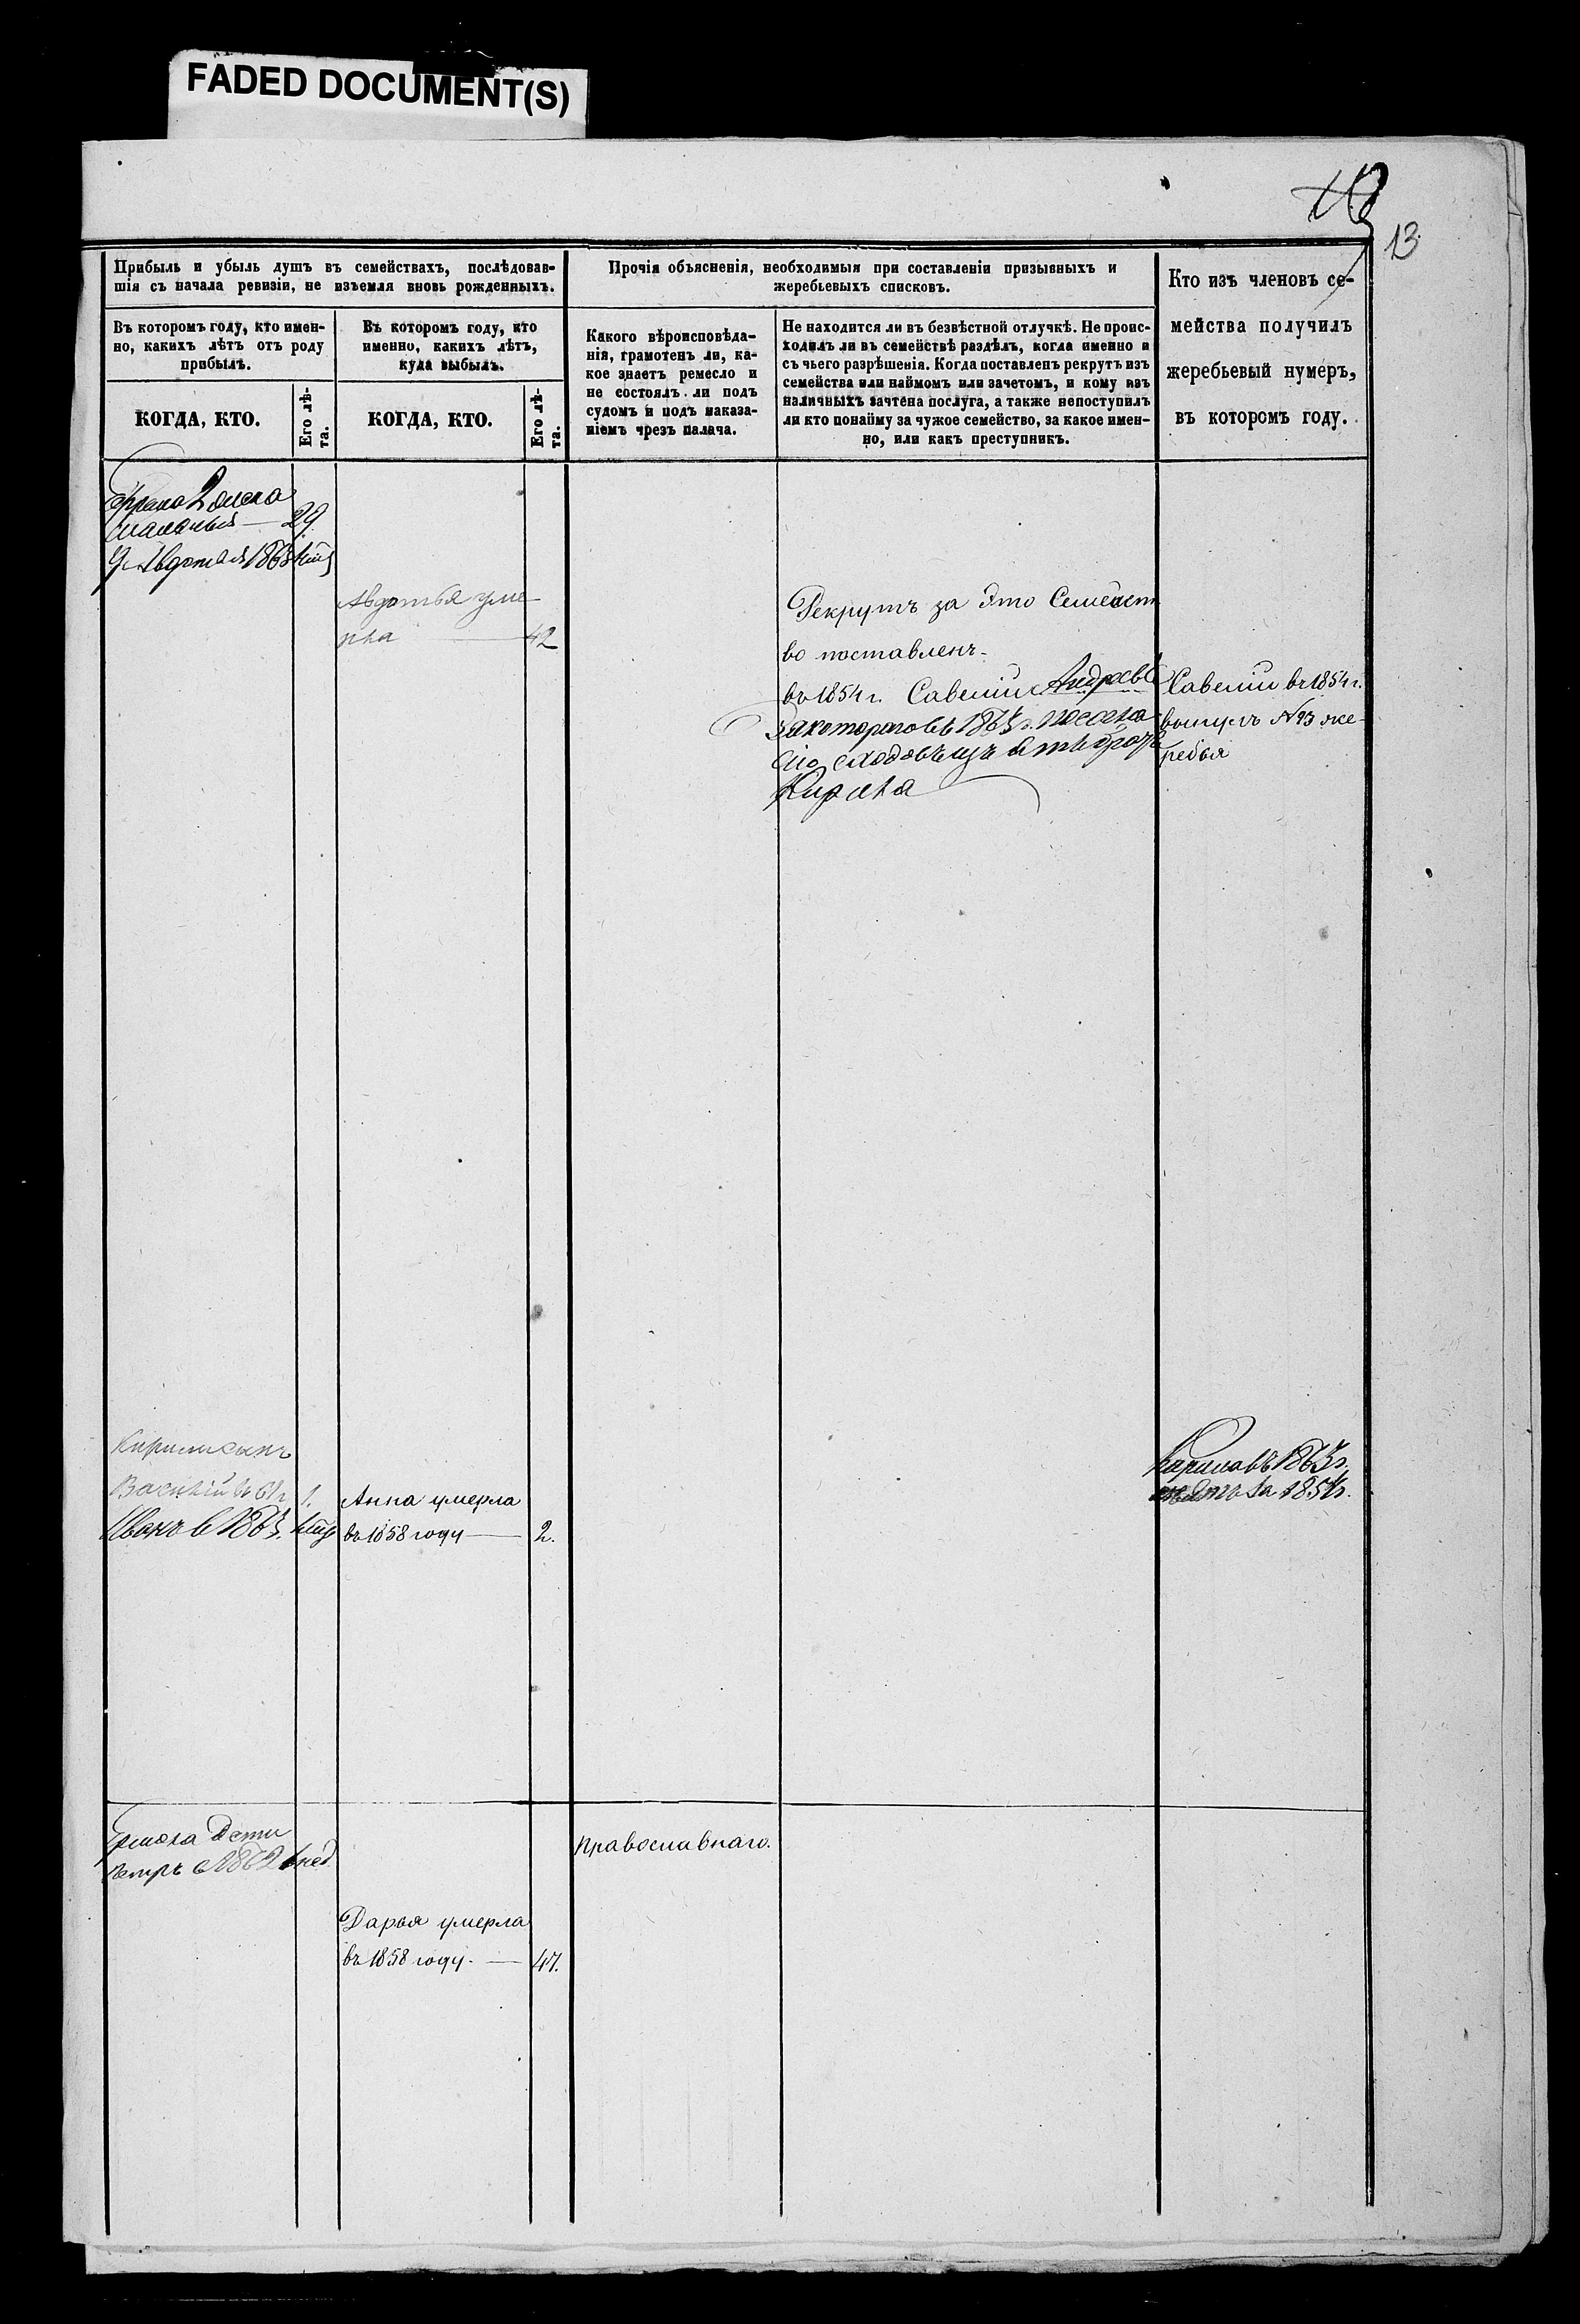 FADED DOCUMENT(S)
13
Прибыль и убыль душъ въ семействахъ, послѣдовав-
шія съ начала ревизіи, не изъемля вновь рожденныхъ.
Въ которомъ году, кто имен-
но, какихъ лѣтъ отъ роду
прибылъ.
КОГДА, КТО.
Его лѣ-
та.
Въ которомъ году, кто
именно, какихъ лѣтъ,
куда выбылъ.
КОГДА, КТО.
Его лѣ-
та.
Прочія объясненія, необходимыя при составленіи призывныхъ и
жеребьевыхъ списковъ.
Какого вѣроисповѣда-
нія, грамотенъ ли, ка-
кое знаетъ ремесло и
не состоялъ ли подъ
судомъ и подъ наказа-
ніемъ чрезъ палача.
Не находится ли въ безвѣстной отлучкѣ. Не проис-
ходилъ ли въ семействѣ раздѣлъ, когда именно и
съ чьего разрѣшенія. Когда поставленъ рекрутъ изъ
семейства или наймомъ или зачетомъ, и кому изъ
наличныхъ зачтена послуга, а также непоступилъ
ли кто понайму за чужое семейство, за какое имен-
но, или какъ преступникъ.
Кто изъ членовъ се-
мейства получилъ
жеребьевый нумеръ,
въ которомъ году.
29
1863
Авдотья уме-
рла — 42
Рекрутъ за Это Семейст
во поставленъ
въ 1854 г. Савелій Андреевъ
за котораго въ 1863 г.
Кирила
Савелій въ 1854 г.
вынулъ № 93 же-
ребья
Кирилы сынъ
Василій въ 61 г. 1.
Иванъ в 1863
Анна умерла
въ 1858 году — 2.
Кирила въ 1863 г.
за 1854 г.
Дети
Петръ в 1862
православнаго.
Дарья умерла
въ 1858 году. — 47.